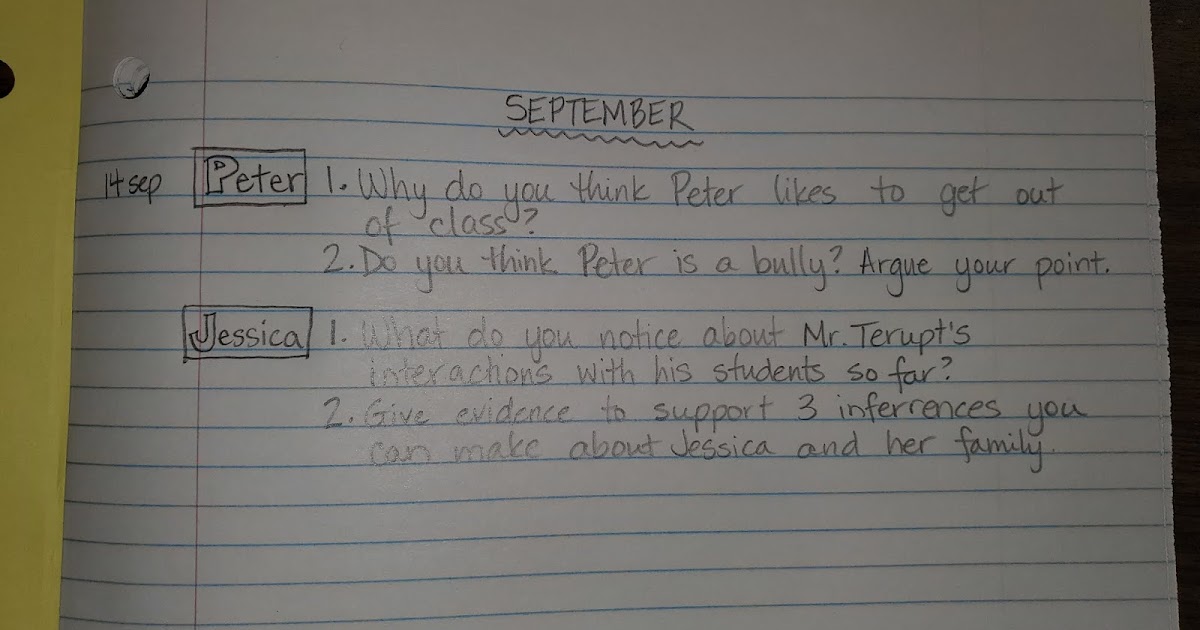 SEPTEMBER
14 sep Peter 1. Why do you think Peter likes to get out
of class?
2. Do you think Peter is a bully? Argue your point.
Jessica 1. What do you notice about Mr. Terupt's
interactions with his students so far?
2. Give evidence to support 3 inferrences you
can make about Jessica and her family.